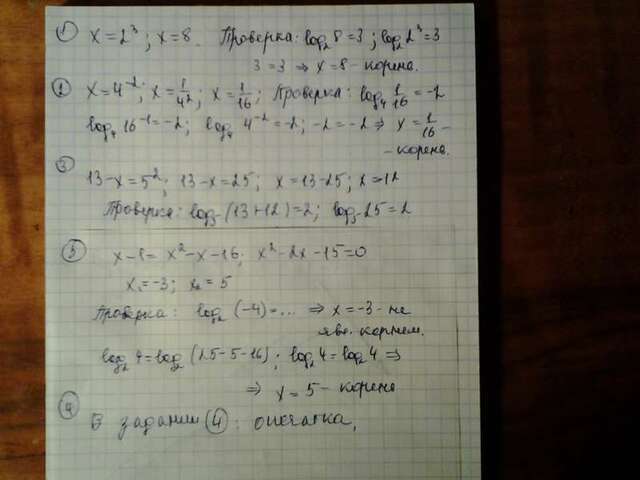 ① x = 2³; x = 8. Проверка: log₂8 = 3; log₂2³ = 3
3 = 3 ⇒ x = 8 - корень.
② x = 4⁻²; x = 1/4²; x = 1/16; Проверка: log₄ 1/16 = -2
log₄ 16⁻¹ = -2; log₄ 4⁻² = -2; -2 = -2 ⇒ x = 1/16 -
- корень.
③
13-x = 5²; 13-x = 25; x = 13-25; x = -12
Проверка: log₅(13+12) = 2; log₅25 = 2
⑤ x-1 = x²-x-16; x²-2x-15=0
x₁ = -3; x₂ = 5
Проверка: log₂(-4) = ... ⇒ x = -3 - не
явл. корнем.
log₂4 = log₂(25-5-16); log₂4 = log₂4 ⇒
⇒ x = 5 - корень
④ В задании ④: опечатка,